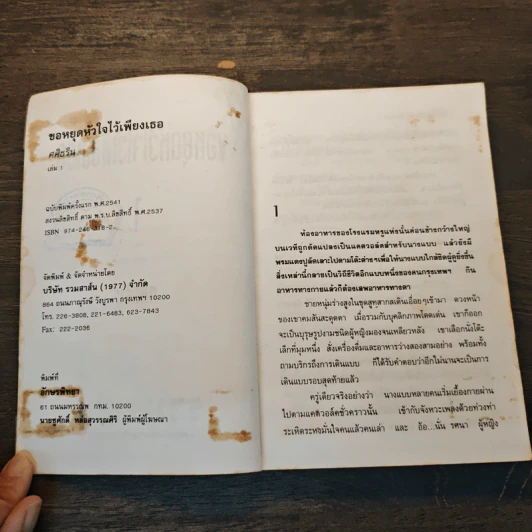 ขอหยุดหัวใจไว้เพียงเธอ
ศศิธริน
เล่ม 1
ฉบับพิมพ์ครั้งแรก พ.ศ.2541
สงวนลิขสิทธิ์ ตาม พ.ร.บ.ลิขสิทธิ์ พ.ศ.2537
ISBN 974-246-318-2
จัดพิมพ์ & จัดจำหน่ายโดย
บริษัท รวมสาส์น (1977) จำกัด
864 ถนนภาณุรังษี วังบูรพา กรุงเทพฯ 10200
โทร. 226-3808, 221-6483, 623-7843
Fax: 222-2036
พิมพ์ที่
อักษรพิทยา
61 ถนนมหรรณพ กทม. 10200
นายชูศักดิ์ หลิ่งสุวรรณศิริ ผู้พิมพ์ผู้โฆษณา
1
ห้องอาหารของโรงแรมหรูแห่งนั้นค่อนข้างกว้างใหญ่
บนเวทีถูกดัดแปลงเป็นแคตวอล์คสำหรับนางแบบ แล้วยังมี
พรมแดงปูลัดเลาะไปตามโต๊ะต่างๆเพื่อให้นางแบบใกล้ชิดผู้ดูยิ่งขึ้น
สิ่งเหล่านี้กลายเป็นวิถีชีวิตอีกแบบหนึ่งของคนกรุงเทพฯ กิน
อาหารทางกายแล้วก็ต้องเสพอาหารทางตา
ชายหนุ่มร่างสูงในชุดสูทสากลเดินเอื่อยๆเข้ามา ดวงหน้า
ของเขาคมสันสะดุดตา เมื่อรวมกับบุคลิกภาพโดดเด่น เขาก็ออก
จะเป็นบุรุษรูปงามชนิดผู้หญิงมองจนเหลียวหลัง เขาเลือกนั่งโต๊ะ
เล็กที่มุมหนึ่ง สั่งเครื่องดื่มและอาหารว่างสองสามอย่าง พร้อมทั้ง
ถามบริกรถึงการเดินแบบ ก็ได้รับคำตอบว่าอีกไม่นานจะเป็นการ
เดินแบบรอบสุดท้ายแล้ว
ครู่เดียวจริงอย่างว่า นางแบบหลายคนเริ่มเยื้องกายผ่าน
ไปตามแคตวอล์คชั่วคราวนั้น เข้ากับจังหวะเพลงด้วยท่วงท่า
ระเหิดระหงมั่นใจคนแล้วคนเล่า และ อ้อ...นั่น รศนา ผู้หญิง